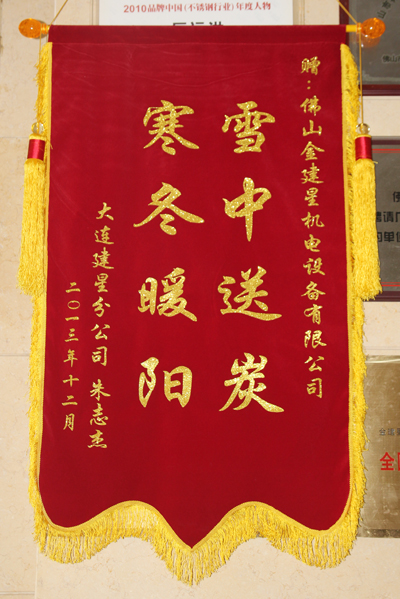 2010品牌中国(不锈钢行业)年度人物
赠：佛山金建星机电设备有限公司
雪中送炭
寒冬暖阳
大连建星分公司 朱志杰
二〇一三年十二月